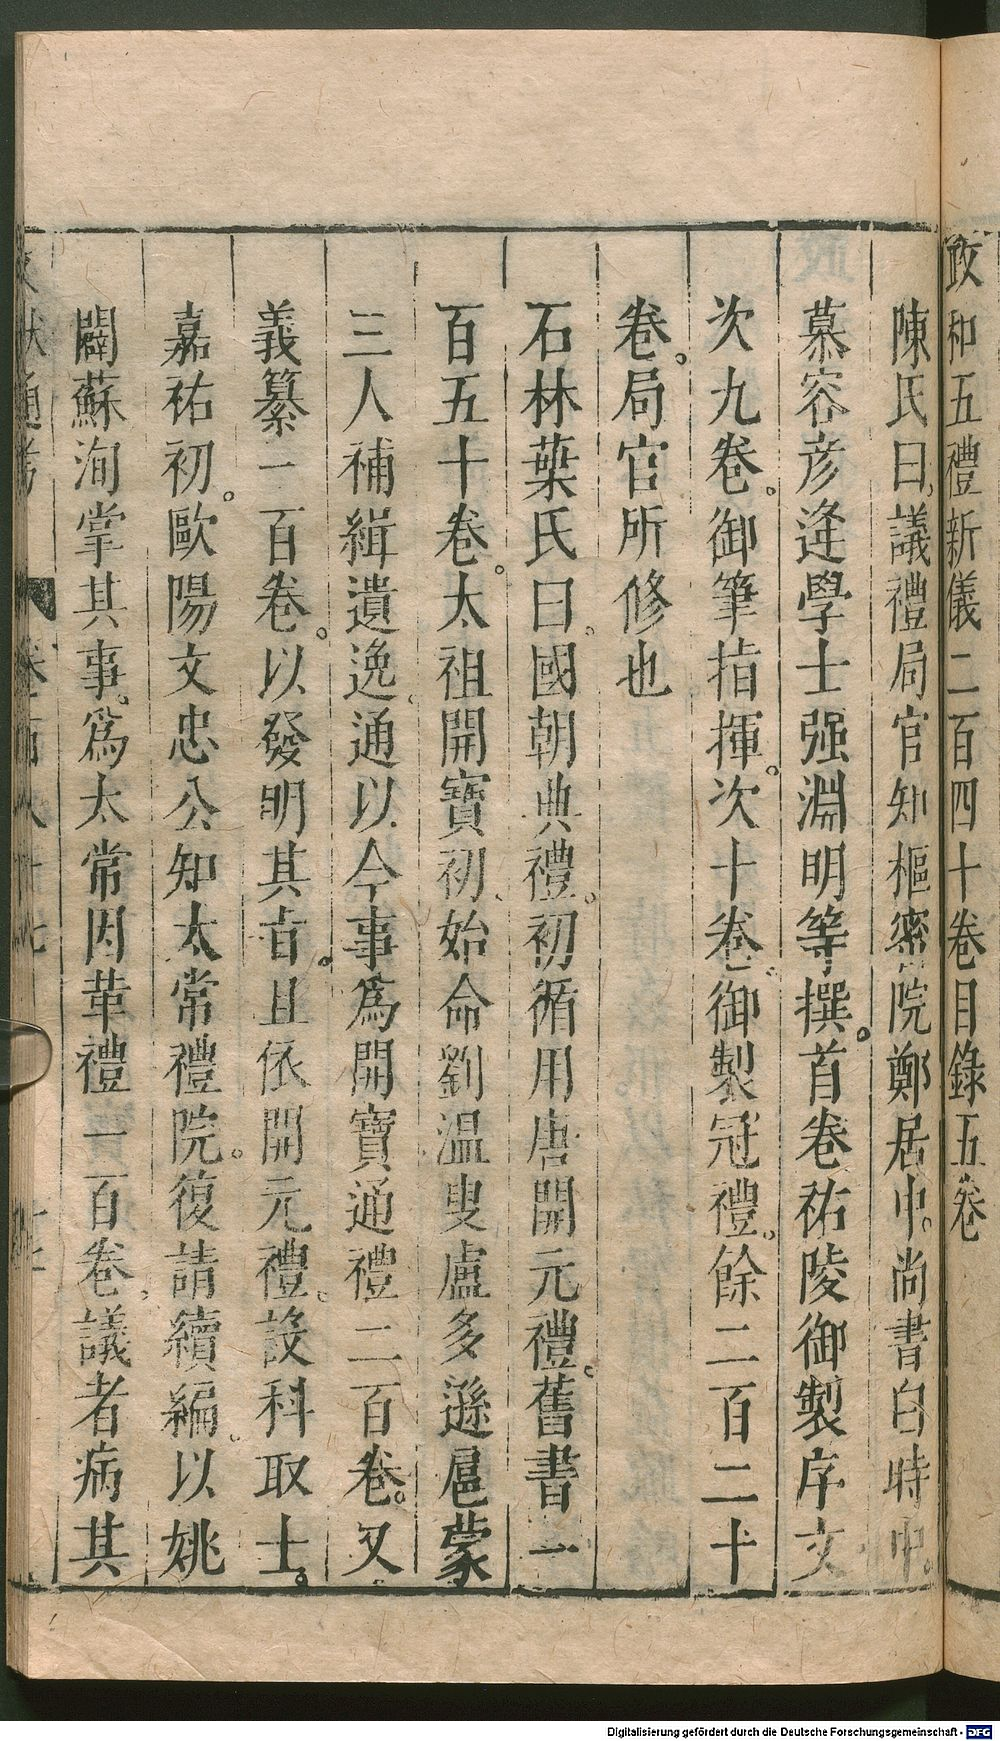 政和五禮新儀二百四十卷目錄五卷
陳氏曰議禮局官知樞密院鄭居中。尚書白時中。
慕容彥逢學士强淵明等撰。首卷祐陵御製序文
次九卷。御筆指揮。次十卷。御製冠禮。餘二百二十
卷。局官所修也
石林葉氏曰。國朝典禮。初循用唐開元禮。舊書一
百五十卷。太祖開寶初、始命劉温叟盧多遜扈蒙
三人補緝遺逸。通以今事爲開寶通禮二百卷。又
義纂一百卷。以發明其㫖。且依開元禮。設科取士。
嘉祐初。歐陽文忠公知太常禮院。復請續編。以姚
闢蘇洵掌其事。爲太常因革禮一百卷。議者病其
獻通考
Digitalisierung gefördert durch die Deutsche Forschungsgemeinschaft - DFG